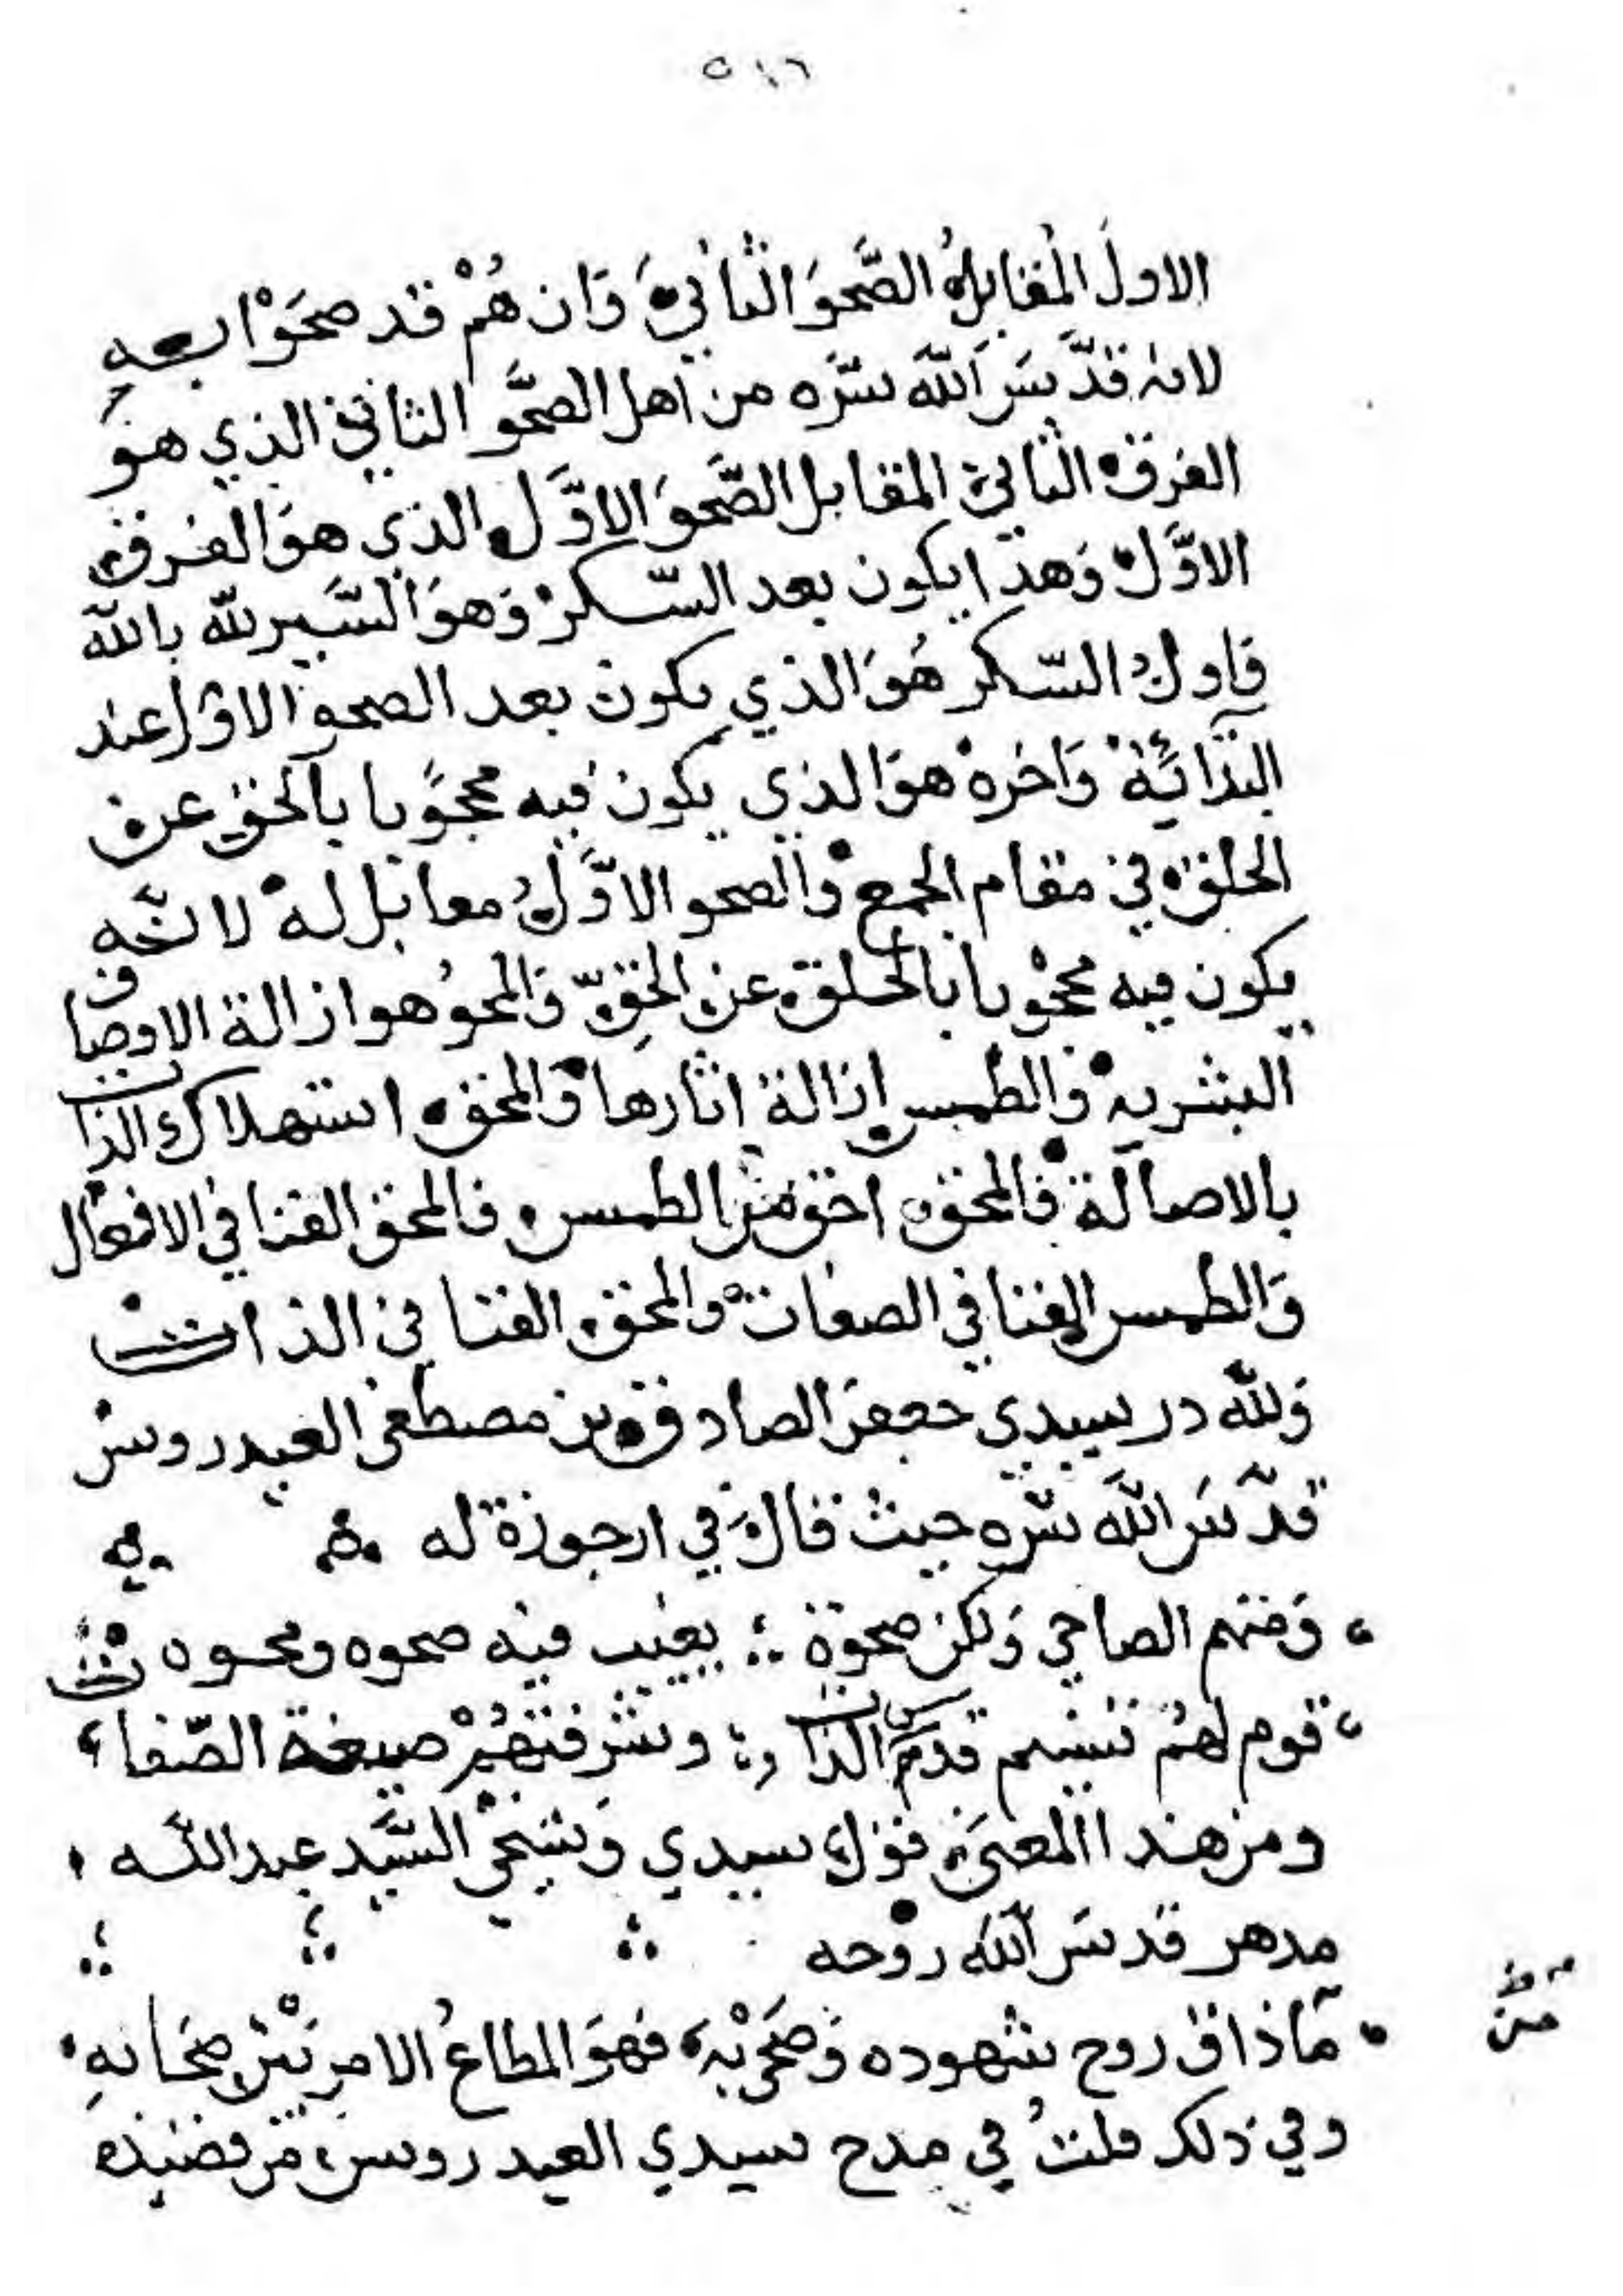 ٥١٦
الاول المقابل الصَّحوَ الثاني وَان هُمْ قد صحَوْا به
لانه قدَّسَ اللّه سرّه من اهل الصَّحو الثاني الذي هو
الفرق الثاني المقابل الصَّحوَ الاوَّل الذي هوَ الفرق
الاوَّل وَهذا يكون بعد السّكرْ وَهوَ السَّير للّه باللّه
فاول السّكر هُوَ الذي يكون بعد الصحو الاوّل عند
البدَائَة وَاخره هوَ الذي يكون فيه محجوبا بالحق عن
الخلق في مقام الجمع والصحو الاوَّلُ مقابل له لانّه
يكون فيه محجوبا بالخلق عن الحقِّ وَالمحوُ هو ازالة الاوصاف
البشريه والطمس ازالة اثارها وَالمحق استهلاك الذات
بالاصالة فالمحق اخق من الطمس فالمحق الفنا في الافعال
وَالطمس الفنا في الصفات والمحق الفنا في الذات
وَللّه در سيدي جعفر الصادق بن مصطفى العيدروس
قدّسَ اللّه سرّه حيث قال في ارجوزة له
وَمنهم الصاحي وَلكن صحوة ؞ يغيب فيه صحوه ومحوه
قوم لهُم نسيم قدس الذات ؞ وشرفتهُمْ صبغة الصّفا
ومن هذا المعنى قول سيدي وَشيخيْ السَّيّد عبد اللّه
مدهر قدسَ اللّه روْحه
ماذاق روح شهوده وَصَحَى بهِ فهوَ المطاعُ الامر بَيْن صحَابهِ
من
وفي ذلك قلتُ في مدح سيدي العيدروس من قصيده